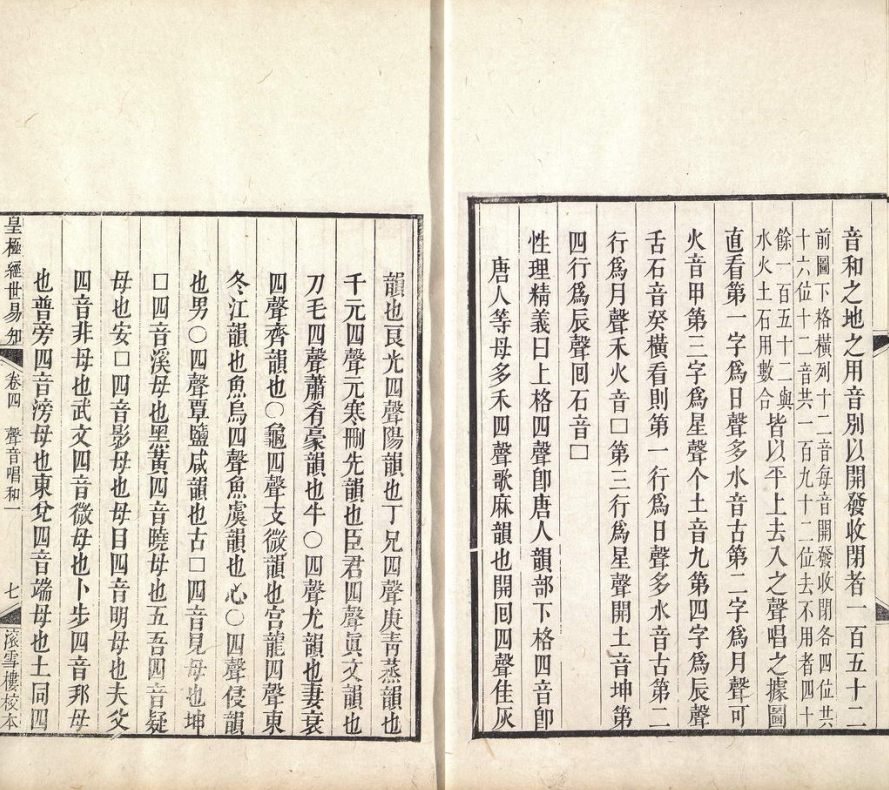 音和之地之用音別以開發收閉者一百五十二
前圖下格橫列十二音每音開發收閉各四位共
十六位十二音共一百九十二位去不用者四十
餘一百五十二與
水火土石用數合
皆以平上去入之聲唱之據圖
直看第一字爲日聲多水音古第二字爲月聲可
火音甲第三字爲星聲个土音九第四字爲辰聲
舌石音癸橫看則第一行爲日聲多水音古第二
行爲月聲禾火音□第三行爲星聲開土音坤第
四行爲辰聲回石音□
性理精義曰上格四聲卽唐人韻部下格四音卽
唐人等母多禾四聲歌麻韻也開回四聲佳灰
韻也良光四聲陽韻也丁兄四聲庚靑蒸韻也
千元四聲元寒刪先韻也臣君四聲眞文韻也
刀毛四聲蕭肴豪韻也牛○四聲尤韻也妻衰
四聲齊韻也○龜四聲支微韻也宫龍四聲東
冬江韻也魚烏四聲魚虞韻也心○四聲侵韻
也男○四聲覃鹽咸韻也古□四音見母也坤
□四音溪母也黑黃四音曉母也五吾四音疑
母也安□四音影母也母目四音明母也夫父
四音非母也武文四音微母也卜步四音邦母
也普旁四音滂母也東兌四音端母也土同四
皇極經世易知 卷四 聲音唱和一 七 滾雪樓校本